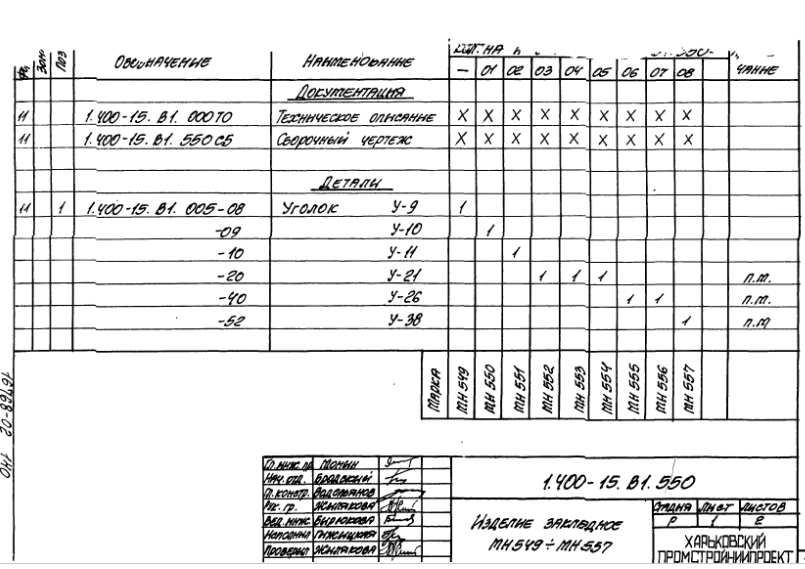 Зон. Поз Обозначение Наименование Кол. на
— 01 02 03 04 05 06 07 08 чание
Документация
11 1.400-15. В1. 000 ТО Техническое описание X X X X X X X X X
11 1.400-15. В1. 550 СБ Сборочный чертеж X X X X X X X X X
Детали
11 1 1.400-15. В1. 005-08 Уголок У-9 1
-09 У-10 1
-10 У-11 1
-20 У-21 1 1 1 п.м.
-40 У-26 1 1 п.м.
-52 У-38 1 п.м
Марка МН 549 МН 550 МН 551 МН 552 МН 553 МН 554 МН 555 МН 556 МН 557
Гл. инж. пр.
Нач. отд. Бродский
Гл. констр. Водопьянов
Рук. гр. Жилякова
Вед. инж. Бирюкова
Исполнил
Проверил Жилякова
1.400-15. В1. 550
Изделие закладное
МН549÷МН557
Стадия Лист Листов
Р 1 2
ХАРЬКОВСКИЙ
ПРОМСТРОЙНИИПРОЕКТ